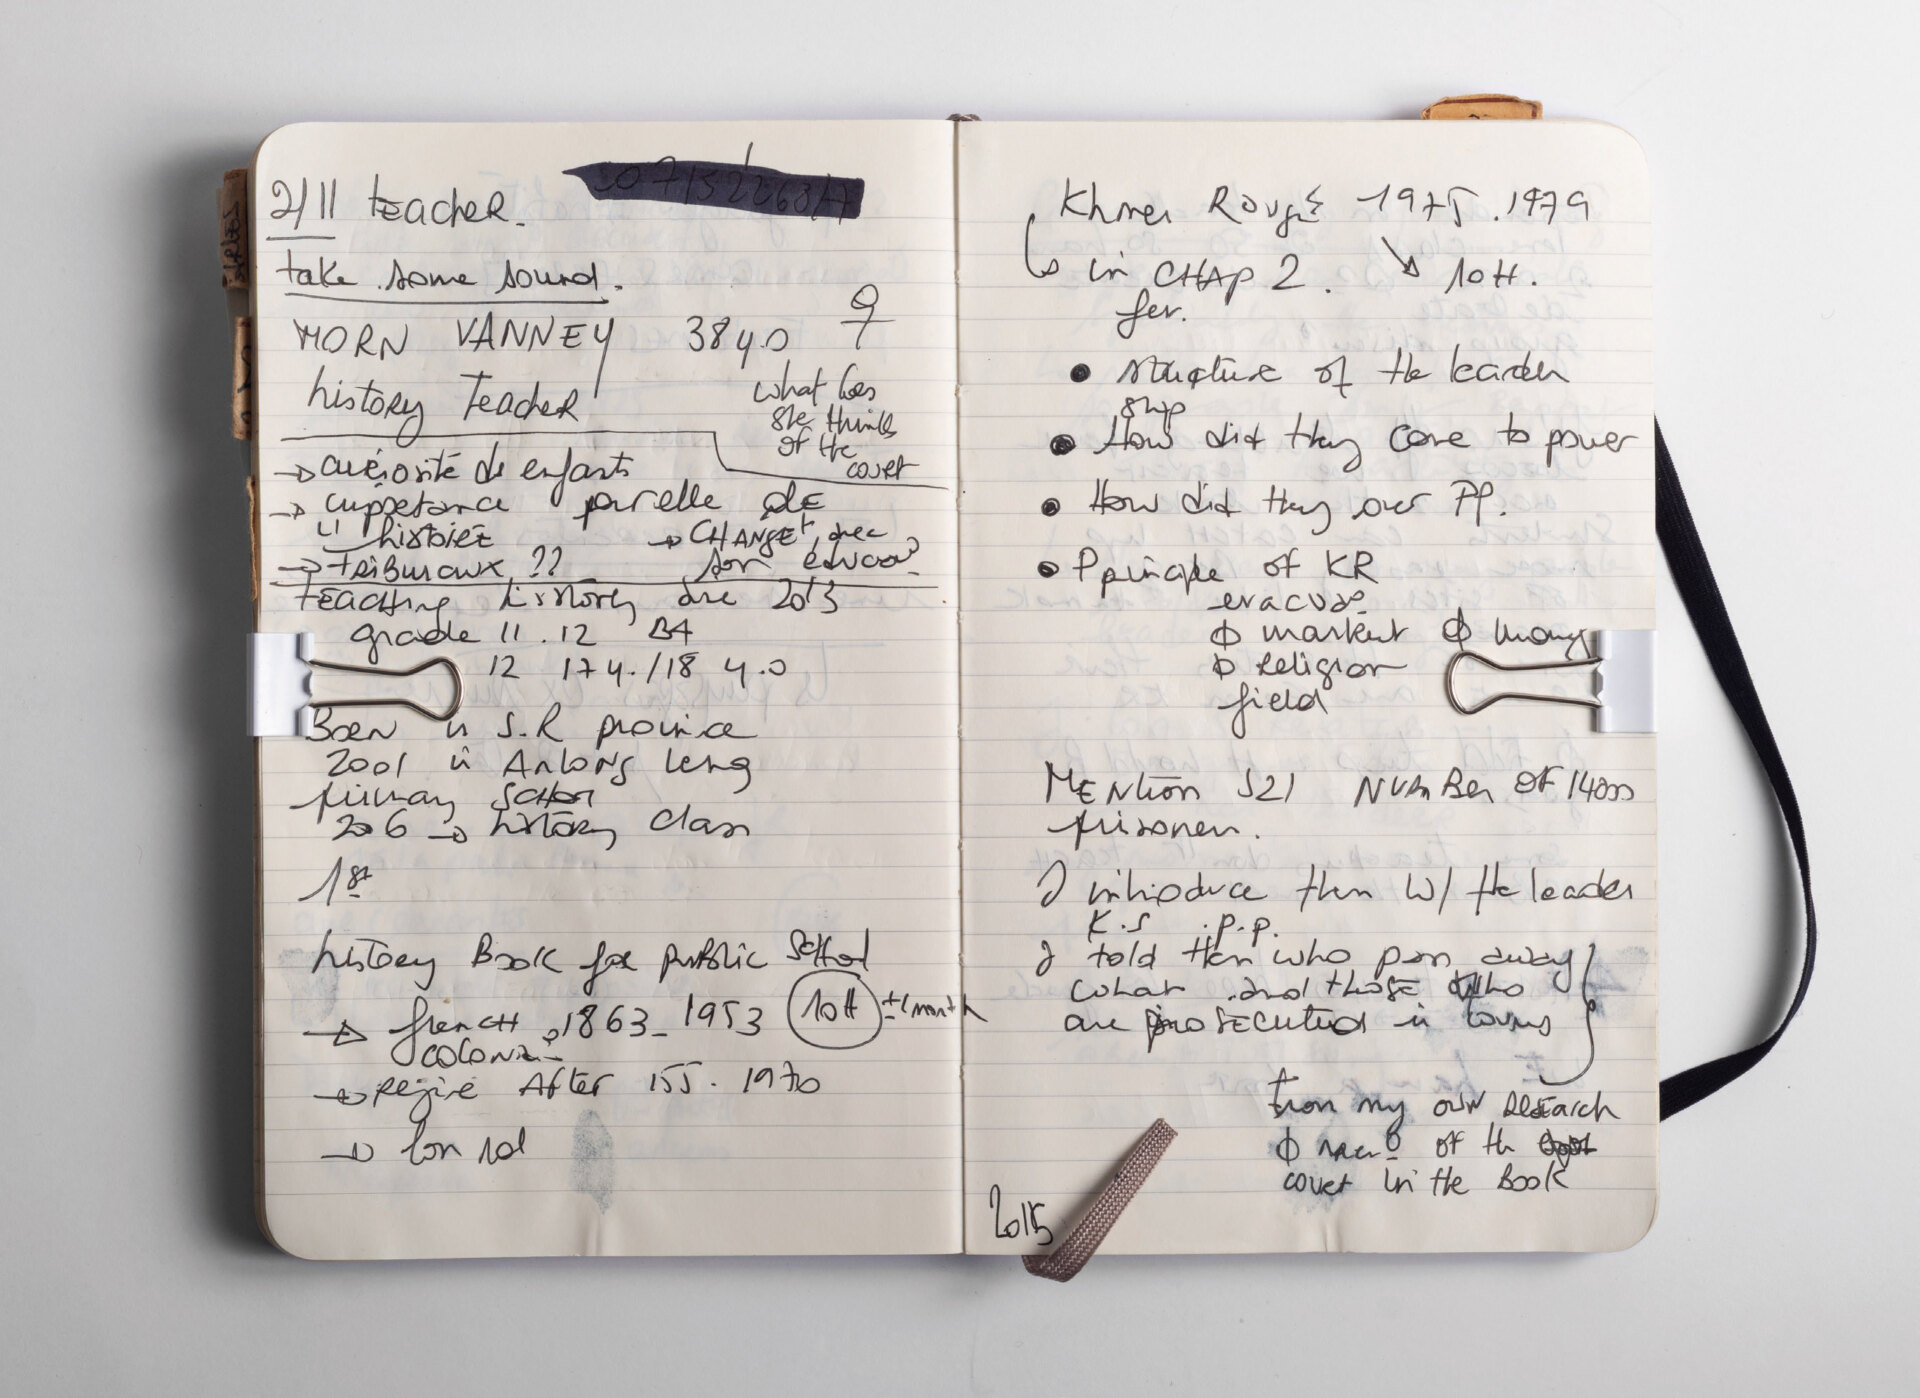 2/11 teacher.
take some sound.
MORN VANNEY 38 y.o ♀
history Teacher
what does
she thinks
of the
court
→ curiosité de enfants
→ importance pour elle de
l'histoire → CHANGET avec
→ TRIBUNAUX ?? son
teaching history 2013
grade 11 . 12
12 17 y. / 18 y.o
Born in S.R province
2001 in Anlong Veng
primary school
2006 → history class
1st
history Book for public School
→ french 1863 - 1953 10H ± 1 month
→ After 1970
→ Lon nol
Khmer Rouge 1975 . 1979
↳ in CHAP 2. ↘ 10H.
• structure of the leader
ship
• How did they come to power
• How did they over PP.
• Principle of KR
ϕ market ϕ money
ϕ religion
field
Mention S21 Number of 14000
prisoner.
I introduce them w/ the leader
K.S . P.P.
I told them who pass away
what and those who
are prosecuted in
from my own research
ϕ of the
court in the Book
2015